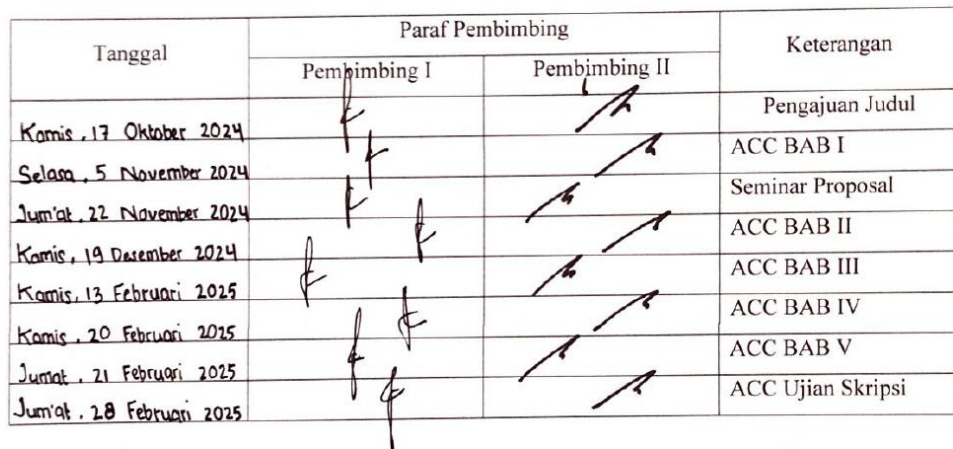 Tanggal Paraf Pembimbing Keterangan
Pembimbing I Pembimbing II
Kamis, 17 Oktober 2024 Pengajuan Judul
Selasa, 5 November 2024 ACC BAB I
Jum'at, 22 November 2024 Seminar Proposal
Kamis, 19 Desember 2024 ACC BAB II
Kamis, 13 Februari 2025 ACC BAB III
Kamis, 20 Februari 2025 ACC BAB IV
Jumat, 21 Februari 2025 ACC BAB V
Jum'at, 28 Februari 2025 ACC Ujian Skripsi